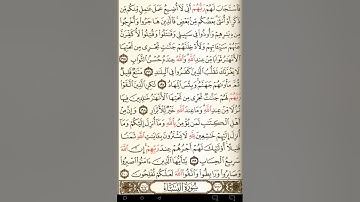 فَٱسْتَجَابَ لَهُمْ رَبُّهُمْ أَنِّى لَآ أُضِيعُ عَمَلَ عَٰمِلٍ مِّنكُم مِّن
ذَكَرٍ أَوْ أُنثَىٰ بَعْضُكُم مِّنۢ بَعْضٍ فَٱلَّذِينَ هَاجَرُوا۟ وَأُخْرِجُوا۟
مِن دِيَٰرِهِمْ وَأُوذُوا۟ فِى سَبِيلِى وَقَٰتَلُوا۟ وَقُتِلُوا۟ لَأُكَفِّرَنَّ
عَنْهُمْ سَيِّـَٔاتِهِمْ وَلَأُدْخِلَنَّهُمْ جَنَّٰتٍ تَجْرِى مِن تَحْتِهَا
ٱلْأَنْهَٰرُ ثَوَابًا مِّنْ عِندِ ٱللَّهِ وَٱللَّهُ عِندَهُۥ حُسْنُ ٱلثَّوَابِ ١٩٥
لَا يَغُرَّنَّكَ تَقَلُّبُ ٱلَّذِينَ كَفَرُوا۟ فِى ٱلْبِلَٰدِ ١٩٦ مَتَٰعٌ قَلِيلٌ
ثُمَّ مَأْوَىٰهُمْ جَهَنَّمُ وَبِئْسَ ٱلْمِهَادُ ١٩٧ لَٰكِنِ ٱلَّذِينَ ٱتَّقَوْا۟
رَبَّهُمْ لَهُمْ جَنَّٰتٌ تَجْرِى مِن تَحْتِهَا ٱلْأَنْهَٰرُ خَٰلِدِينَ فِيهَا
نُزُلًا مِّنْ عِندِ ٱللَّهِ وَمَا عِندَ ٱللَّهِ خَيْرٌ لِّلْأَبْرَارِ ١٩٨ وَإِنَّ مِنْ
أَهْلِ ٱلْكِتَٰبِ لَمَن يُؤْمِنُ بِٱللَّهِ وَمَآ أُنزِلَ إِلَيْكُمْ وَمَآ
أُنزِلَ إِلَيْهِمْ خَٰشِعِينَ لِلَّهِ لَا يَشْتَرُونَ بِـَٔايَٰتِ ٱللَّهِ ثَمَنًا
قَلِيلًا أُو۟لَٰٓئِكَ لَهُمْ أَجْرُهُمْ عِندَ رَبِّهِمْ إِنَّ ٱللَّهَ
سَرِيعُ ٱلْحِسَابِ ١٩٩ يَٰٓأَيُّهَا ٱلَّذِينَ ءَامَنُوا۟ ٱصْبِرُوا۟
وَصَابِرُوا۟ وَرَابِطُوا۟ وَٱتَّقُوا۟ ٱللَّهَ لَعَلَّكُمْ تُفْلِحُونَ ٢٠٠
سُورَةُ النِّسَاءِ